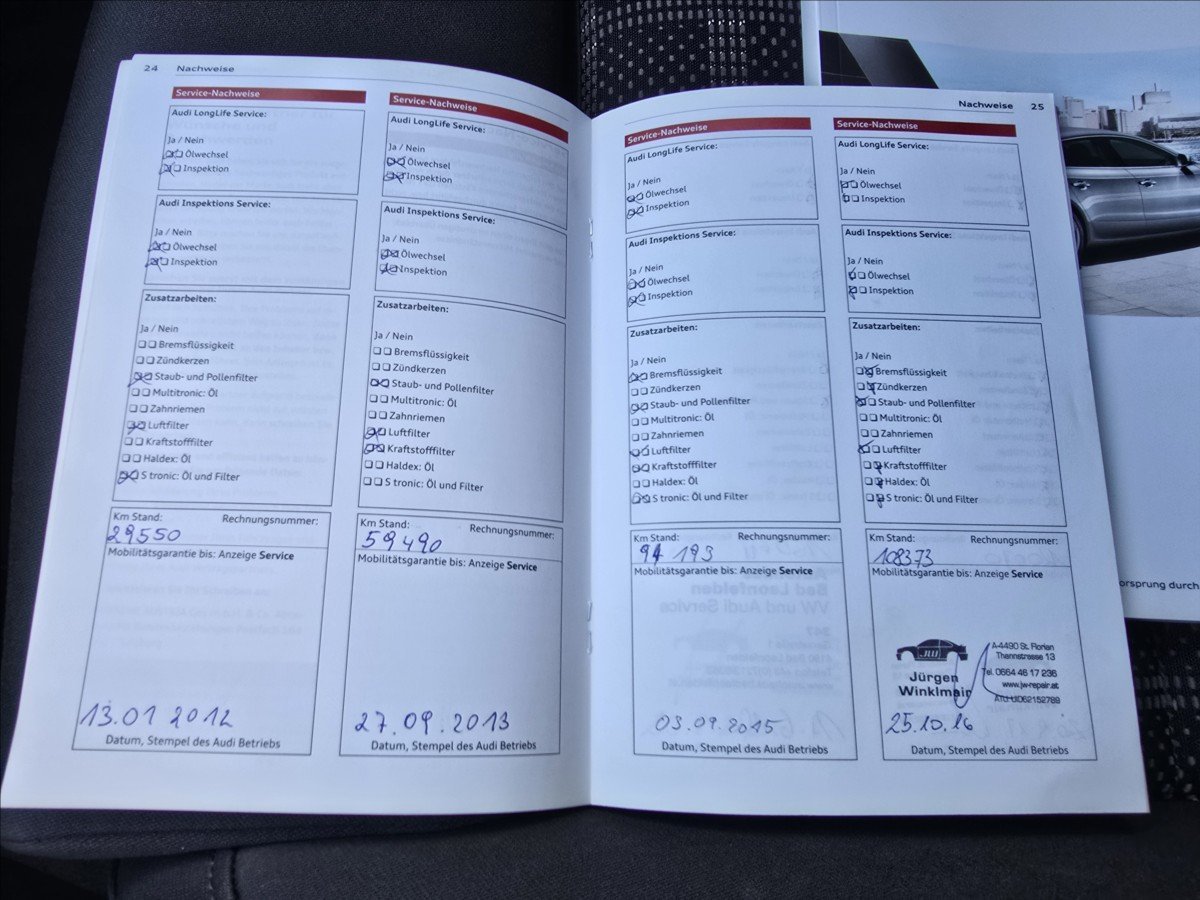 24 Nachweise
Service-Nachweise
Audi LongLife Service:
Ja / Nein
Ölwechsel
Inspektion
Audi Inspektions Service:
Ja / Nein
Ölwechsel
Inspektion
Zusatzarbeiten:
Ja / Nein
Bremsflüssigkeit
Zündkerzen
Staub- und Pollenfilter
Multitronic: Öl
Zahnriemen
Luftfilter
Kraftstofffilter
Haldex: Öl
S tronic: Öl und Filter
Km Stand: Rechnungsnummer:
29550
Mobilitätsgarantie bis: Anzeige Service
13.01 2012
Datum, Stempel des Audi Betriebs
Service-Nachweise
Audi LongLife Service:
Ja / Nein
Ölwechsel
Inspektion
Audi Inspektions Service:
Ja / Nein
Ölwechsel
Inspektion
Zusatzarbeiten:
Ja / Nein
Bremsflüssigkeit
Zündkerzen
Staub- und Pollenfilter
Multitronic: Öl
Zahnriemen
Luftfilter
Kraftstofffilter
Haldex: Öl
S tronic: Öl und Filter
Km Stand: Rechnungsnummer:
59490
Mobilitätsgarantie bis: Anzeige Service
27.09.2013
Datum, Stempel des Audi Betriebs
Nachweise 25
Service-Nachweise
Audi LongLife Service:
Ja / Nein
Ölwechsel
Inspektion
Audi Inspektions Service:
Ja / Nein
Ölwechsel
Inspektion
Zusatzarbeiten:
Ja / Nein
Bremsflüssigkeit
Zündkerzen
Staub- und Pollenfilter
Multitronic: Öl
Zahnriemen
Luftfilter
Kraftstofffilter
Haldex: Öl
S tronic: Öl und Filter
Km Stand: Rechnungsnummer:
94 193
Mobilitätsgarantie bis: Anzeige Service
03.09.2015
Datum, Stempel des Audi Betriebs
Service-Nachweise
Audi LongLife Service:
Ja / Nein
Ölwechsel
Inspektion
Audi Inspektions Service:
Ja / Nein
Ölwechsel
Inspektion
Zusatzarbeiten:
Ja / Nein
Bremsflüssigkeit
Zündkerzen
Staub- und Pollenfilter
Multitronic: Öl
Zahnriemen
Luftfilter
Kraftstofffilter
Haldex: Öl
S tronic: Öl und Filter
Km Stand: Rechnungsnummer:
108373
Mobilitätsgarantie bis: Anzeige Service
JW
Jürgen
Winklmair
A-4490 St. Florian
Thannstrasse 13
Tel. 0664 46 17 236
www.jw-repair.at
ATU-U62152789
25.10.16
Datum, Stempel des Audi Betriebs
orsprung durch